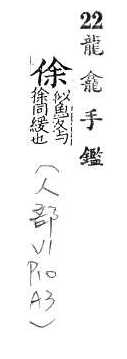 22 龍龕手鑑
俆
似魚反与
徐同緩也
(人部 V1 P10 A3)